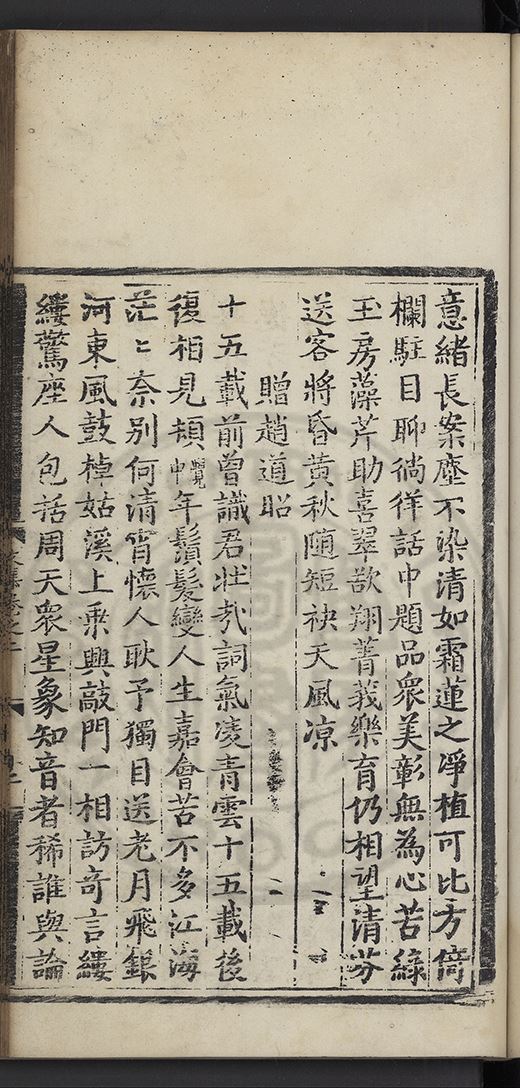 意緒長案塵不染清如霜蓮之淨植可比方倚
欄駐目聊徜徉話中題品衆美彰無為心苦綠
玉房藻芹助喜翠欲翔菁莪樂育仍相望清芬
送客將昏黃秋隨短袂天風凉
贈趙道昭
十五載前曾識君壯哉詞氣凌青雲十五載後
復相見頻覽中年鬚髮變人生嘉會苦不多江海
茫〻奈別何清宵懷人耿予獨目送老月飛銀
河東風鼓棹姑溪上乘興敲門一相訪奇言縷
縷驚座人包括周天衆星象知音者稀誰與論